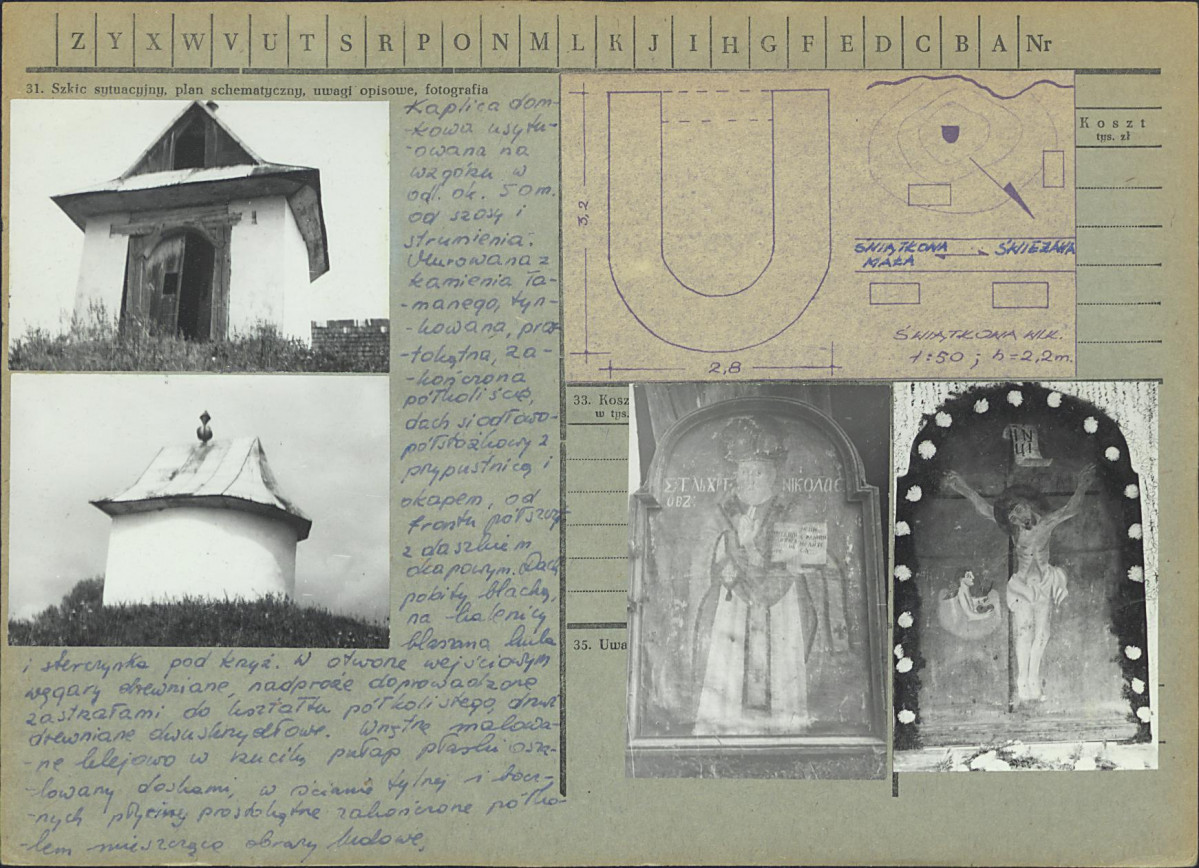 Z Y X W V U T S R P O N M L K J I H G F E D C B A Nr
31. Szkic sytuacyjny, plan schematyczny, uwagi opisowe, fotografia
Kaplica dom-
-kowa usytu-
-owana na
wzgórzu w
odl. ok. 50 m.
od szosy i
strumienia.
Murowana z
kamienia ła-
-manego, tyn-
-kowana, pros-
-tokątna, za-
-kończona
półkoliście,
dach siodłowo-
półstożkowy z
przypustnicą i
okapem, od
frontu półszczyt
z daszkiem
okapowym. Dach
pokryty blachą,
na kalenicy
blaszana kula
i sterczynka pod krzyż. W otworze wejściowym
węgary drewniane, nadproże doprowadzone
zastrzałami do kształtu półkolistego, drzwi
drewniane dwuskrzydłowe. Wnętrze malowa-
-ne klejowo w kuciki pułap płaski osza-
-lowany deskami, w ścianie tylnej i bocz-
-nych płyciny prostokątne zakończone półko-
-lem mieszczące obrazy ludowe.
3,2
2,8
ŚWIĄTKOWA
MAŁA
ŚWIERZOWA
ŚWIĄTKOWA WLK.
1:50 ; h=2,2m.
Koszt
tys. zł
33. Kosz
w tys.
35. Uwa
ΝΙΚΟΛΑΕ
ОБZ: